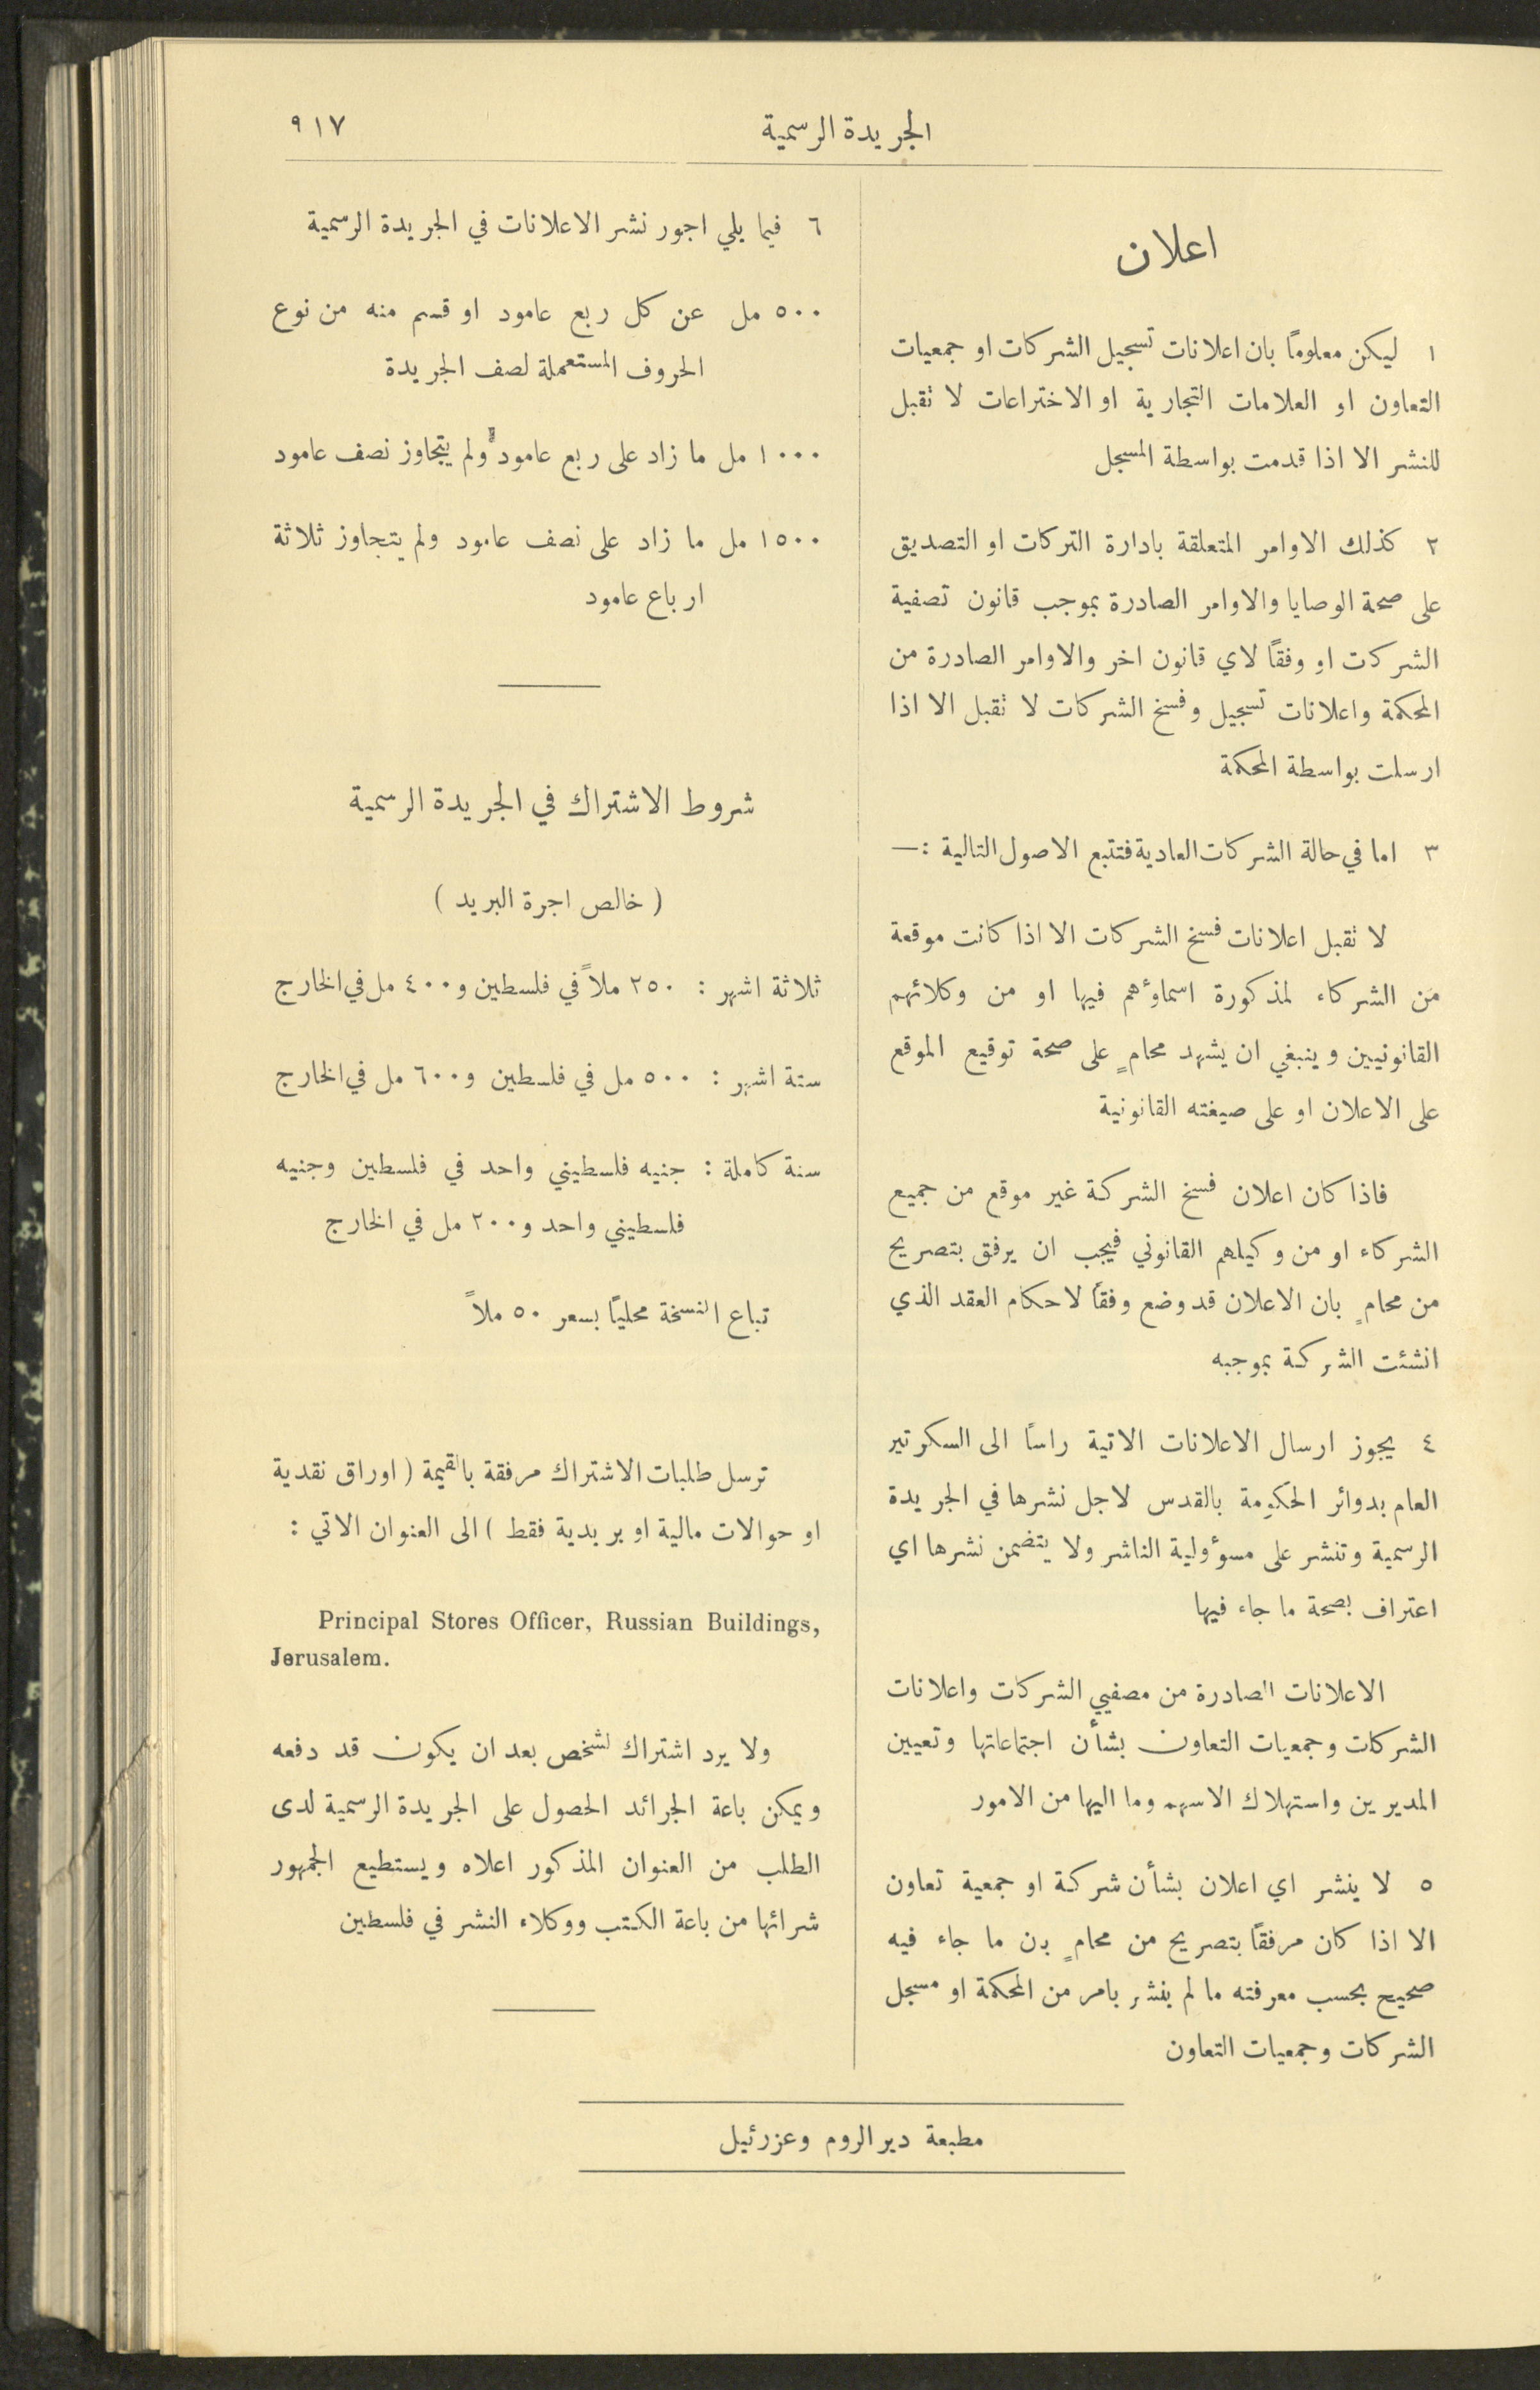 الجريدة الرسمية
٩١٧
اعلان
١ ليكن معلوماً بان اعلانات تسجيل الشركات او جمعيات
التعاون او العلامات التجارية او الاختراعات لا تقبل
للنشر الا اذا قدمت بواسطة المسجل
٢ كذلك الاوامر المتعلقة بادارة التركات او التصديق
على صحة الوصايا والاوامر الصادرة بموجب قانون تصفية
الشركت او وفقاً لاي قانون اخر والاوامر الصادرة من
المحكمة واعلانات تسجيل وفسخ الشركات لا تقبل الا اذا
ارسلت بواسطة المحكمة
٣ اما في حالة الشركات العادية فتتبع الاصول التالية :—
لا تقبل اعلانات فسخ الشركات الا اذا كانت موقعة
من الشركاء لمذكورة اسماؤهم فيها او من وكلائهم
القانونيين وينبغي ان يشهد محامٍ على صحة توقيع الموقع
على الاعلان او على صيغته القانونية
فاذا كان اعلان فسخ الشركة غير موقع من جميع
الشركاء او من وكيلهم القانوني فيجب ان يرفق بتصريح
من محامٍ بان الاعلان قد وضع وفقاً لاحكام العقد الذي
انشئت الشركة بموجبه
٤ يجوز ارسال الاعلانات الاتية راساً الى السكرتير
العام بدوائر الحكومة بالقدس لاجل نشرها في الجريدة
الرسمية وتنشر على مسؤولية الناشر ولا يتضمن نشرها اي
اعتراف بصحة ما جاء فيها
الاعلانات الصادرة من مصفيي الشركات واعلانات
الشركات وجمعيات التعاون بشأن اجتماعاتها وتعيين
المديرين واستهلاك الاسهم وما اليها من الامور
٥ لا ينشر اي اعلان بشأن شركة او جمعية تعاون
الا اذا كان مرفقاً بتصريح من محامٍ بن ما جاء فيه
صحيح بحسب معرفته ما لم ينشر بامر من المحكمة او مسجل
الشركات وجمعيات التعاون
٦ فيما يلي اجور نشر الاعلانات في الجريدة الرسمية
٥٠٠ مل عن كل ربع عامود او قسم منه من نوع
الحروف المستعملة لصف الجريدة
١٠٠٠ مل ما زاد على ربع عامود ولم يتجاوز نصف عامود
١٥٠٠ مل ما زاد على نصف عامود ولم يتجاوز ثلاثة
ارباع عامود
شروط الاشتراك في الجريدة الرسمية
( خالص اجرة البريد )
ثلاثة اشهر : ٢٥٠ ملاً في فلسطين و ٤٠٠ مل في الخارج
ستة اشهر : ٥٠٠ مل في فلسطين و ٦٠٠ مل في الخارج
سنة كاملة : جنيه فلسطيني واحد في فلسطين وجنيه
فلسطيني واحد و ٢٠٠ مل في الخارج
تباع النسخة محلياً بسعر ٥٠ ملاً
ترسل طلبات الاشتراك مرفقة بالقيمة ( اوراق نقدية
او حوالات مالية او بريدية فقط ) الى العنوان الاتي :
Principal Stores Officer, Russian Buildings,
Jerusalem.
ولا يرد اشتراك لشخص بعد ان يكون قد دفعه
ويمكن باعة الجرائد الحصول على الجريدة الرسمية لدى
الطلب من العنوان المذكور اعلاه ويستطيع الجمهور
شرائها من باعة الكتب ووكلاء النشر في فلسطين
مطبعة دير الروم وعزرئيل